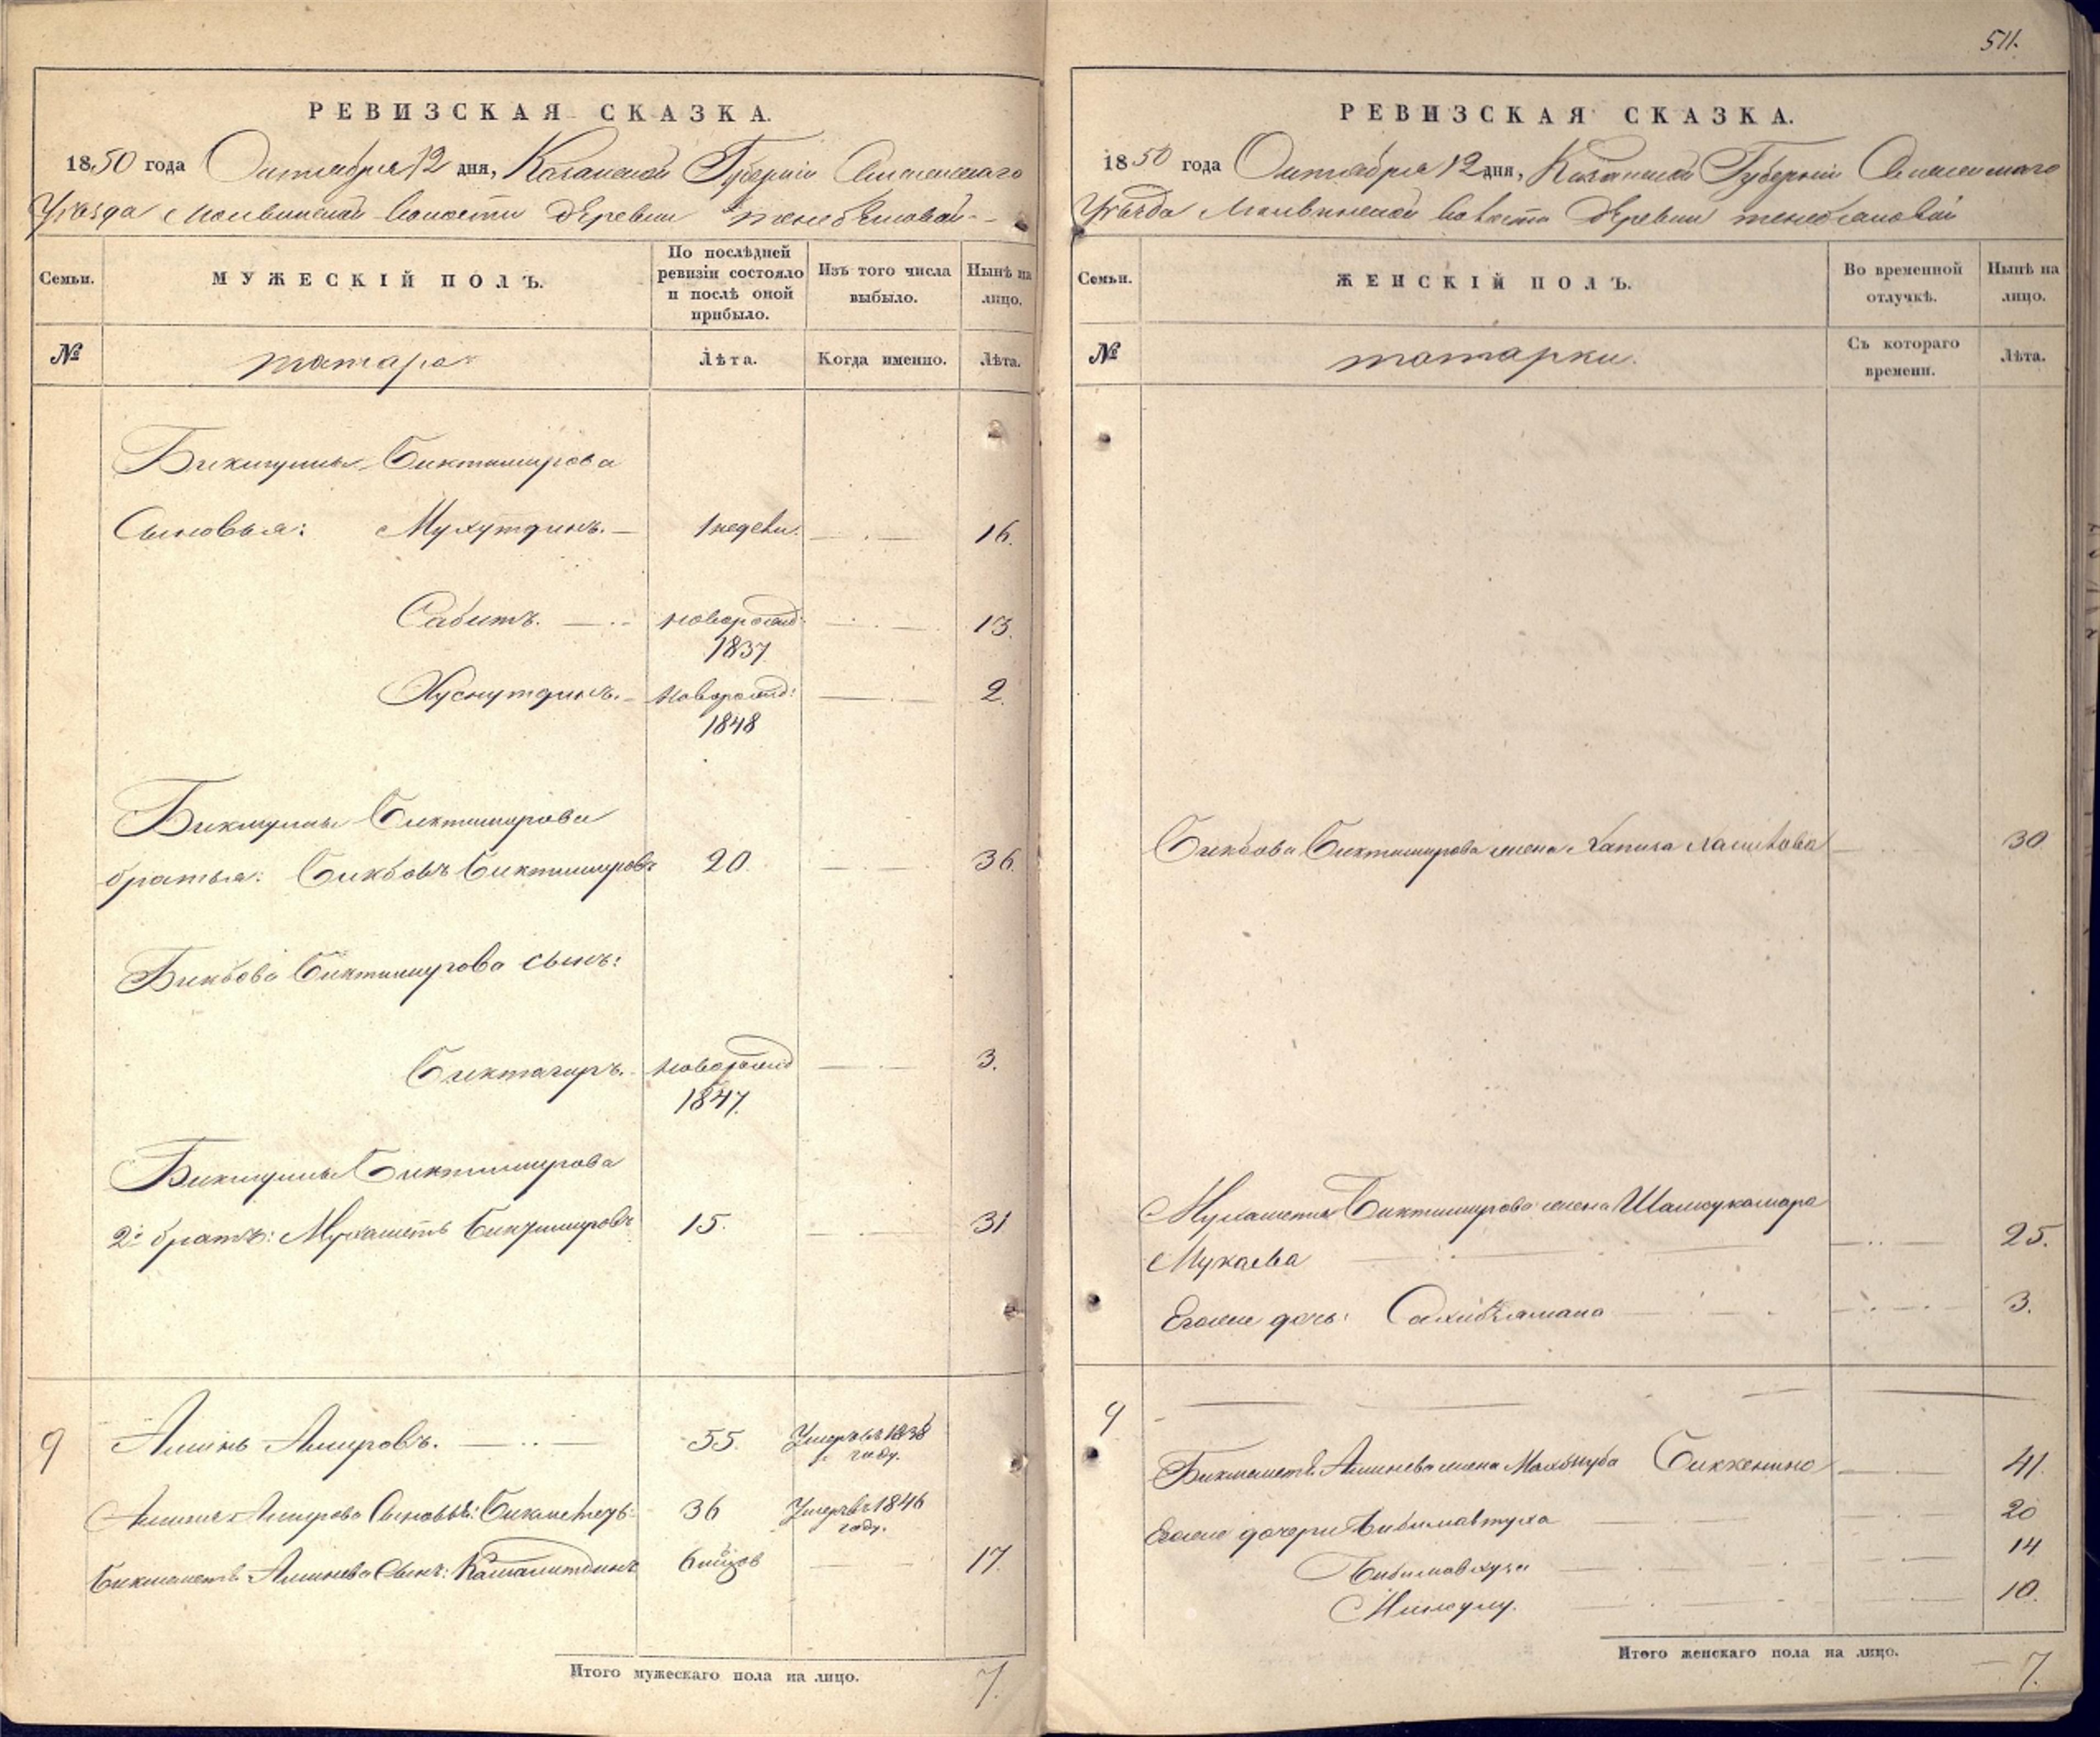 РЕВИЗСКАЯ СКАЗКА.
1850 года Октября 12 дня, Казанской Губерніи Спасскаго
Уѣзда волости Деревни
Семьи.
МУЖЕСКІЙ ПОЛЪ.
По послѣдней ревизіи состояло и послѣ оной прибыло.
Изъ того числа выбыло.
Нынѣ на лицо.
№
татара
Лѣта.
Когда именно.
Лѣта.
Биктимирова
Сыновья: Мухутдинъ. 1 недели. 16.
Сабитъ. новорожд: 13.
1837
Хуснутдинъ. новорожд: 2.
1848
Биктимирова
братья: Бикбовъ Биктимировъ 20. 36.
Бикбова Биктимирова сынъ:
Биктагиръ. новорожд 3.
1847.
Биктимирова
2й братъ: Мухаметъ Биктимировъ 15. 31
9 Аминь Амировъ. 55. Умеръ въ 1838
году.
Амирова Сыновья: 36 Умеръ въ 1846
году.
Бикмаметя Аминева Сынъ: Камалитдинъ 6 мѣсяцов 17.
Итого мужескаго пола на лицо. 7.
511.
РЕВИЗСКАЯ СКАЗКА.
1850 года Октября 12 дня, Казанской Губерніи Спасскаго
Уѣзда волости Деревни
Семьи.
ЖЕНСКІЙ ПОЛЪ.
Во временной отлучкѣ.
Нынѣ на лицо.
№
татарки.
Съ котораго времени.
Лѣта.
Бикбова Биктимирова жена 30
Мухаметя Биктимирова жена Шамсукамара
Мукаева 25.
Егоже дочь: 3.
9
Бикмаметя Аминева жена Махбуба Биккенина 41.
Егоже дочери 20
14
10.
Итого женскаго пола на лицо. 7.